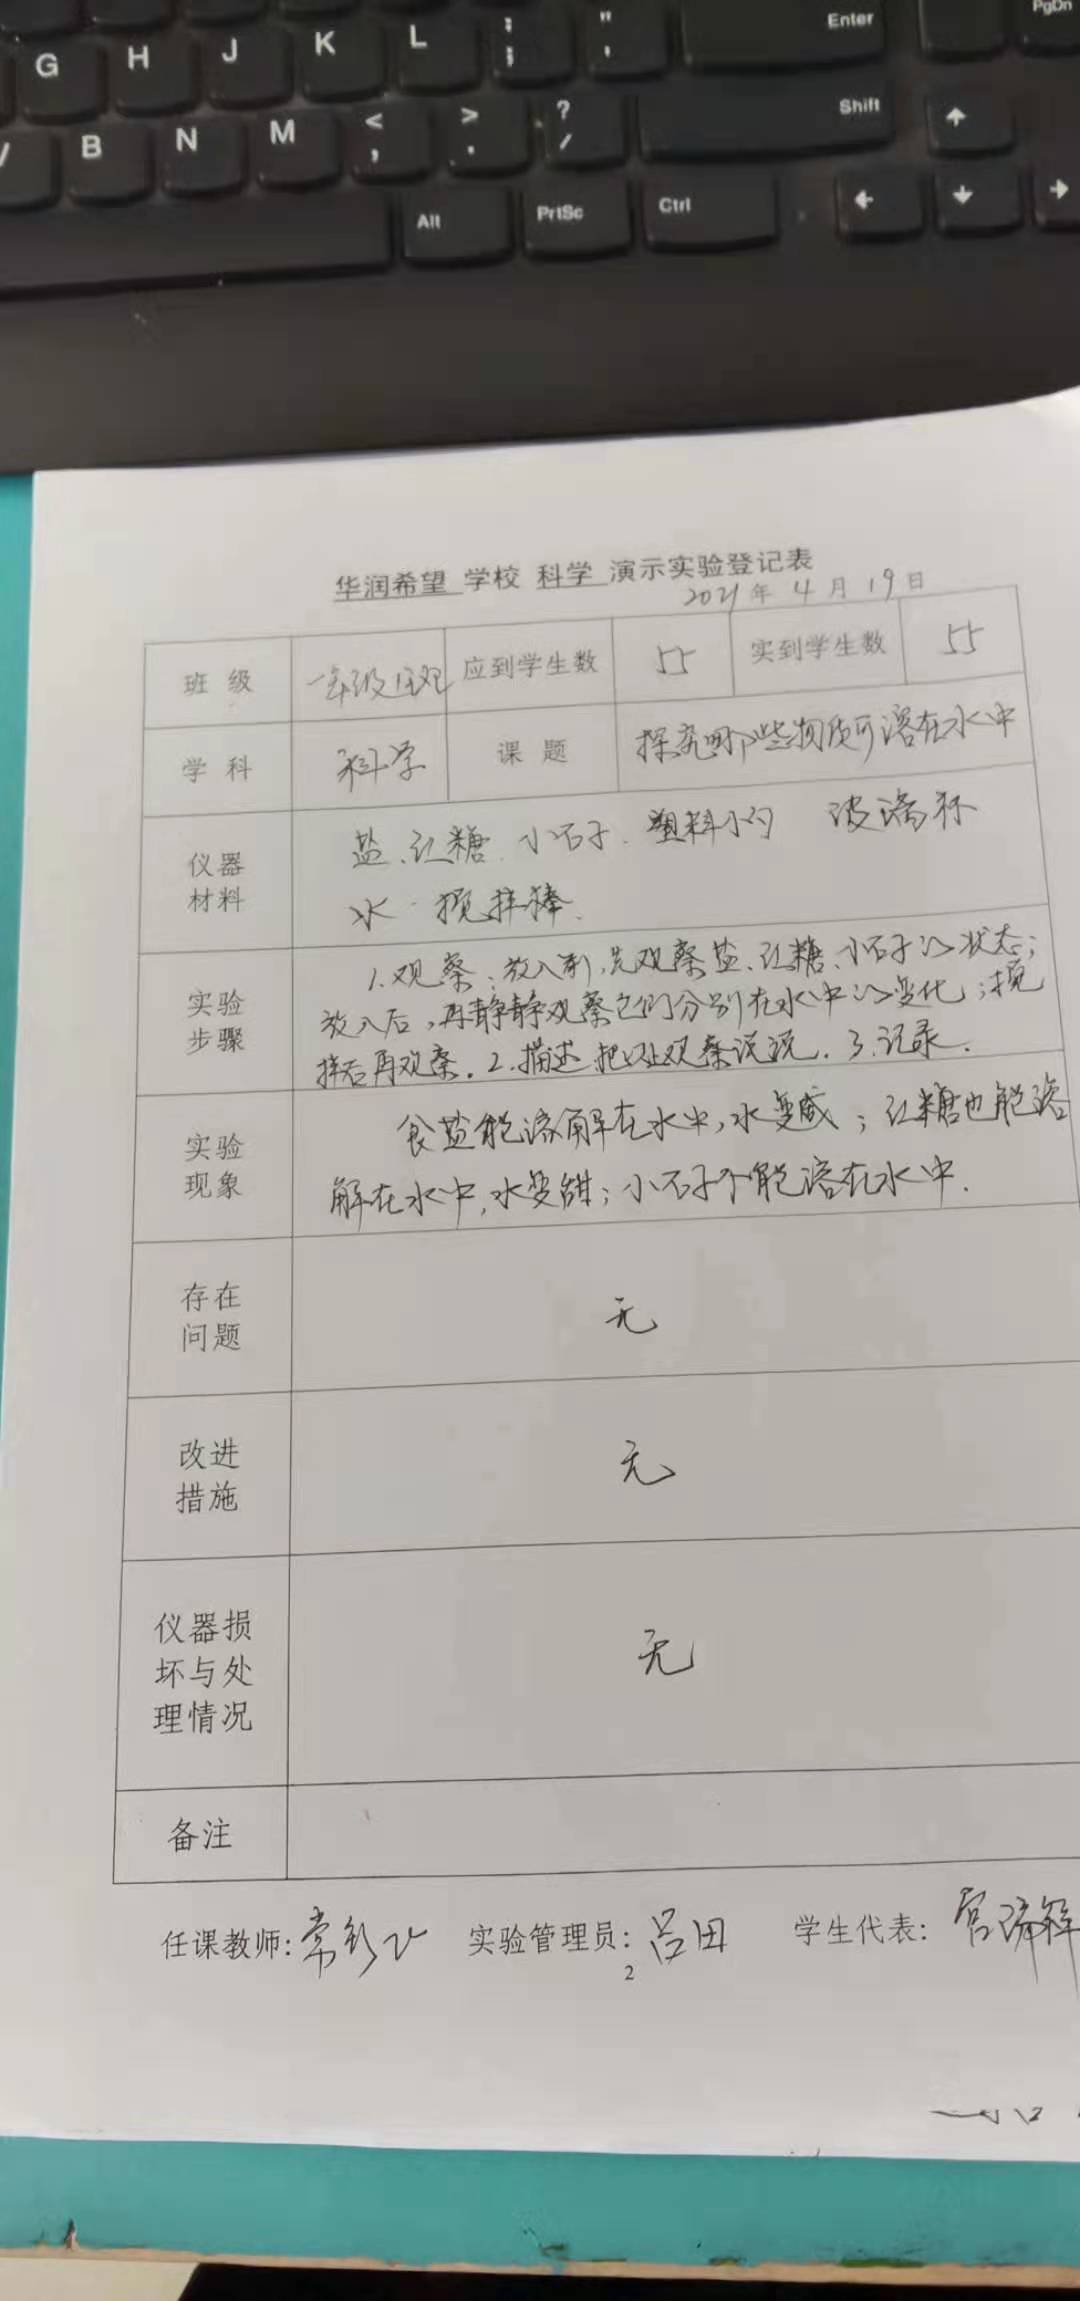 " Enter PgDn
G H J K L : ; ' 
B N M < , > . ? / Shift
Alt PrtSc Ctrl
华润希望 学校 科学 演示实验登记表
2021年4月19日
班级 一年级 班 应到学生数 55 实到学生数 55
学科 科学 课题 探究哪些物质可溶在水中
仪器材料 盐、红糖、小石子、塑料小勺 玻璃杯
水、搅拌棒.
实验步骤 1.观察:放入前,先观察盐、红糖、小石子的状态;
放入后,再静静观察它们分别在水中的变化;搅
拌后再观察. 2.描述 把 观察说说. 3.记录.
实验现象 食盐能溶解在水中,水变咸;红糖也能溶
解在水中,水变甜;小石子不能溶在水中.
存在问题 无
改进措施 无
仪器损坏与处理情况 无
备注
任课教师:常 实验管理员:吕田 学生代表:
2